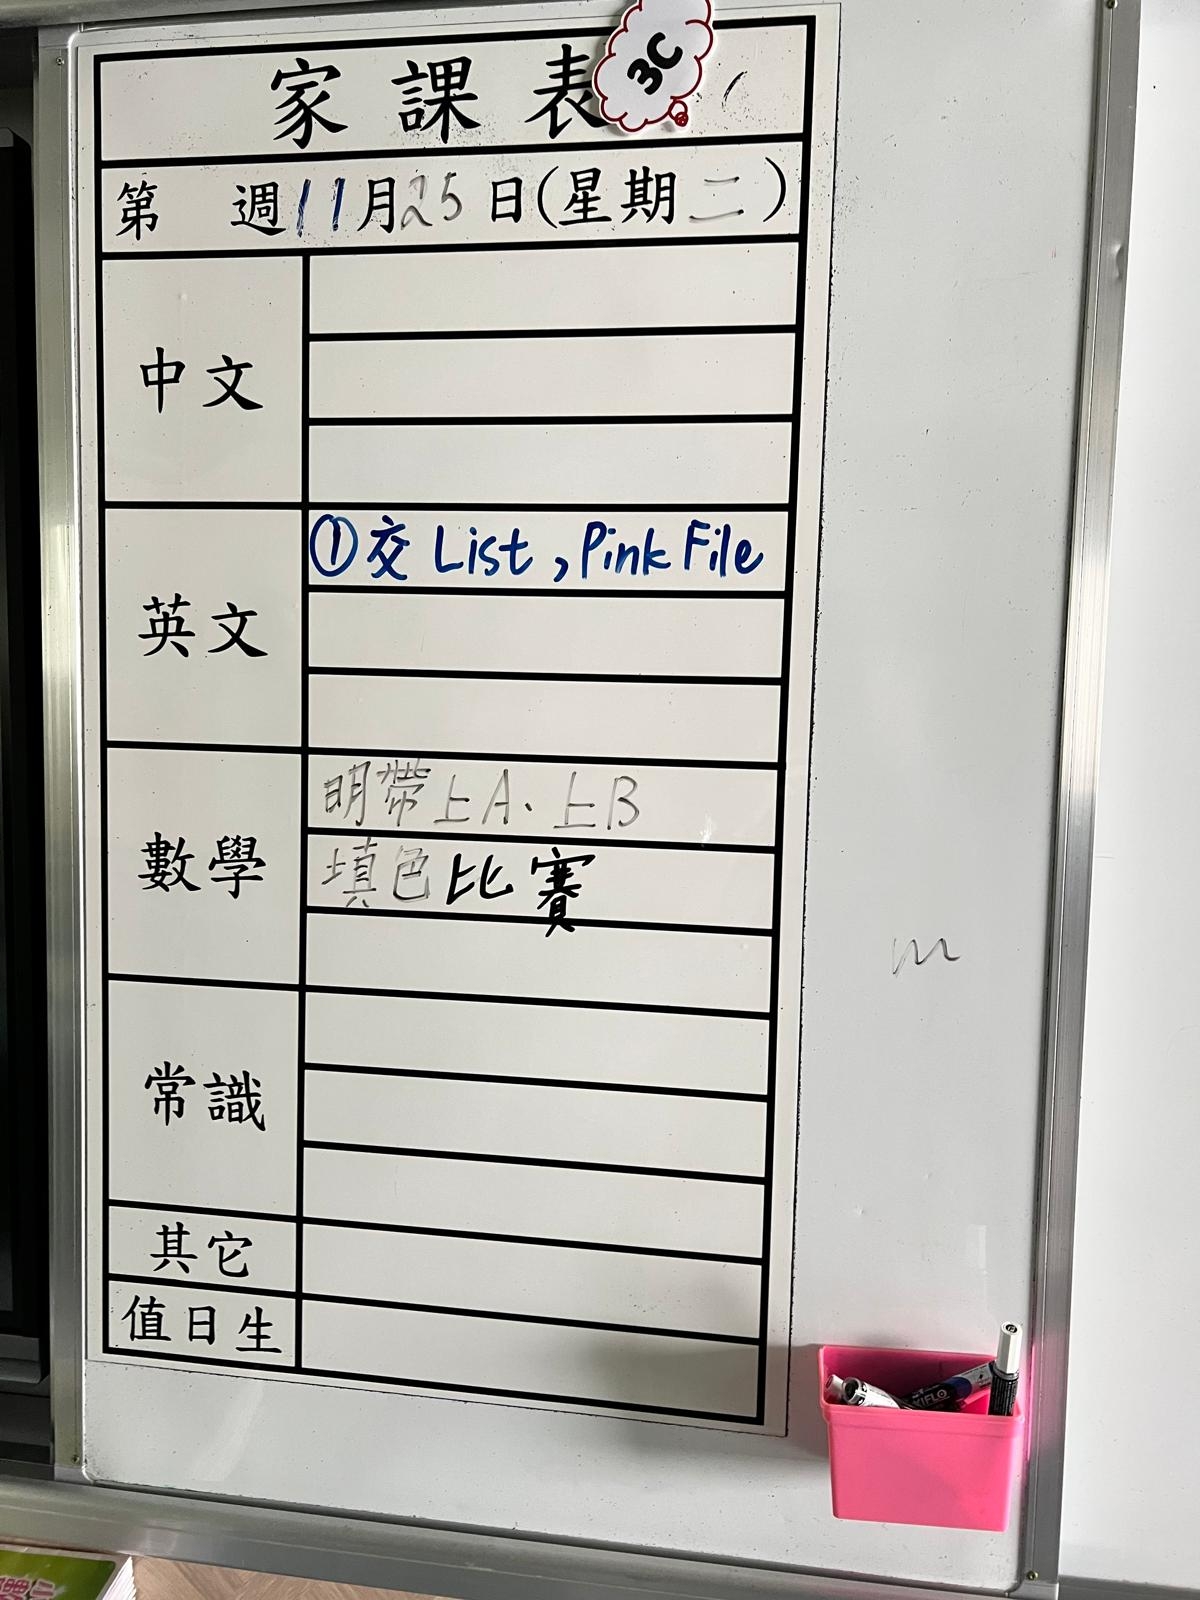 家課表
3C
第 週11月25日(星期二)
中文
英文
①交 List, Pink File
數學
明帶上A、上B
填色比賽
常識
其它
值日生
m